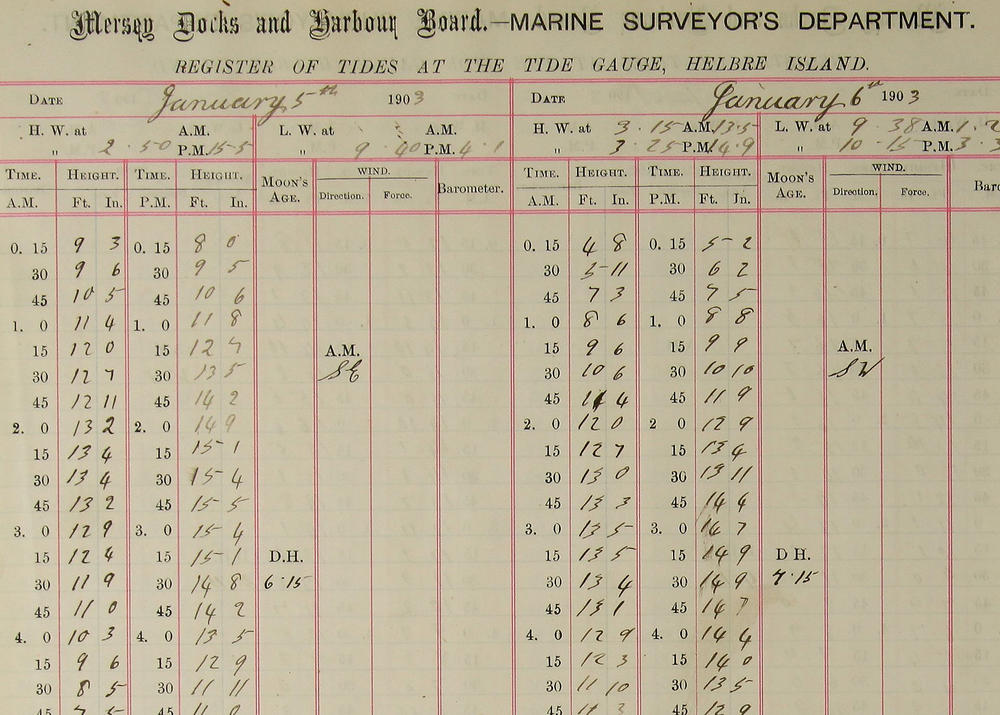 Mersey Docks and Harbour Board.—MARINE SURVEYOR'S DEPARTMENT.
REGISTER OF TIDES AT THE TIDE GAUGE, HELBRE ISLAND.
DATE January 5th 1903 DATE January 6th 1903
H. W. at A.M. L. W. at A.M. H. W. at 3.15 A.M. 13.5 L. W. at 9.38 A.M. 1.2
" 2.50 P.M. 15.5 " 9.40 P.M. 4.1 " 3.25 P.M. 14.9 " 10.15 P.M. 3.3
TIME. HEIGHT. TIME. HEIGHT. MOON'S AGE. WIND. Barometer. TIME. HEIGHT. TIME. HEIGHT. MOON'S AGE. WIND.
A.M. Ft. In. P.M. Ft. In. Direction. Force. A.M. Ft. In. P.M. Ft. In. Direction. Force.
0. 15 9 3 0. 15 8 0 0. 15 4 8 0. 15 5 2
30 9 6 30 9 5 30 5 11 30 6 2
45 10 5 45 10 6 45 7 3 45 7 5
1. 0 11 4 1. 0 11 8 1. 0 8 6 1. 0 8 8
15 12 0 15 12 7 A.M. 15 9 6 15 9 9 A.M.
30 12 7 30 13 5 SE 30 10 6 30 10 10 SW
45 12 11 45 14 2 45 11 4 45 11 9
2. 0 13 2 2. 0 14 9 2. 0 12 0 2 0 12 9
15 13 4 15 15 1 15 12 7 15 13 4
30 13 4 30 15 4 30 13 0 30 13 11
45 13 2 45 15 5 45 13 3 45 14 4
3. 0 12 9 3. 0 15 4 3. 0 13 5 3. 0 14 7
15 12 4 15 15 1 D.H. 15 13 5 15 14 9 D H.
30 11 9 30 14 8 6.15 30 13 4 30 14 9 7.15
45 11 0 45 14 2 45 13 1 45 14 7
4. 0 10 3 4. 0 13 5 4. 0 12 9 4. 0 14 4
15 9 6 15 12 9 15 12 3 15 14 0
30 8 5 30 11 11 30 11 10 30 13 5
45 7 5 45 11 0 45 11 3 45 12 9